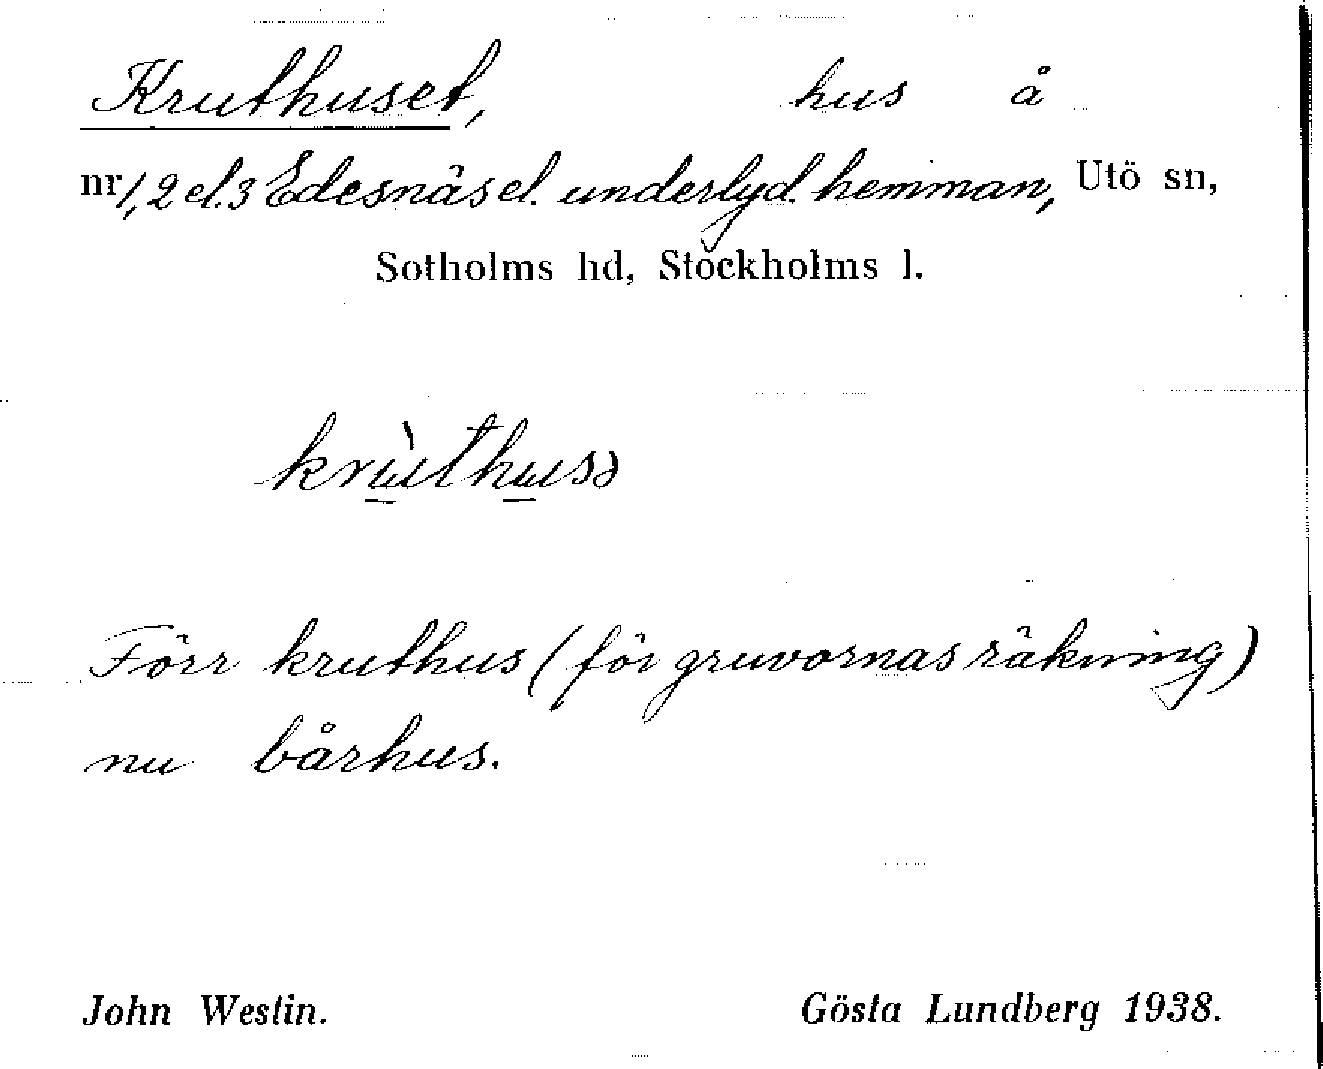 Kruthuset, hus å
nr 1, 2 el. 3 Edesnäs el. underlyd. hemman, Utö sn,
Sotholms hd, Stockholms l.
krùthusə
Förr kruthus (för gruvornas räkning)
nu bårhus.
John Westin. Gösta Lundberg 1938.